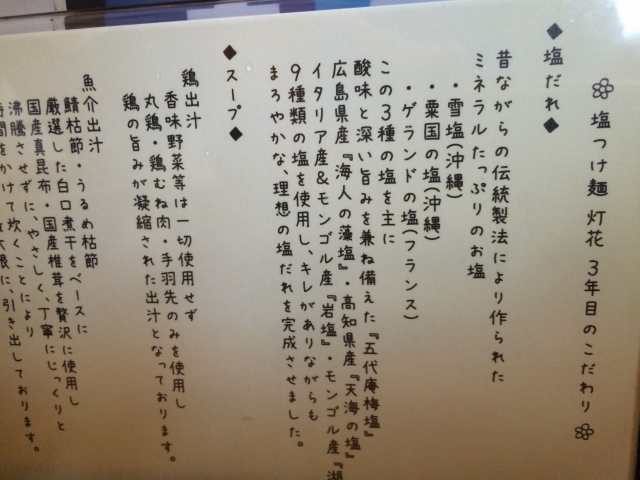 塩つけ麺 灯花 3年目のこだわり
◆塩だれ◆
昔ながらの伝統製法により作られた
ミネラルたっぷりのお塩
・雪塩(沖縄)
・粟国の塩(沖縄)
・ゲランドの塩(フランス)
この3種の塩を主に
酸味と深い旨みを兼ね備えた『五代庵梅塩』
広島県産『海人の藻塩』・高知県産『天海の塩』
イタリア産&モンゴル産『岩塩』・モンゴル産『湖
9種類の塩を使用し、キレがありながらも
まろやかな、理想の塩だれを完成させました。
◆スープ◆
鶏出汁
香味野菜等は一切使用せず
丸鶏・鶏むね肉・手羽先のみを使用し
鶏の旨みが凝縮された出汁となっております。
魚介出汁
鯖枯節・うるめ枯節
厳選した白口煮干をベースに
国産真昆布・国産椎茸を贅沢に使用し
沸騰させずに、やさしく、丁寧にじっくりと
時間をかけて炊くことにより
大限に、引き出しております。